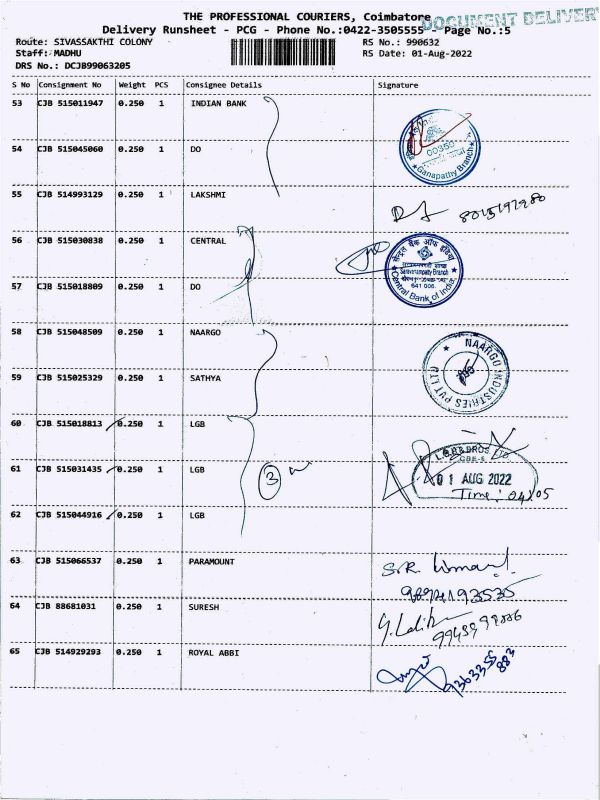 THE PROFESSIONAL COURIERS, Coimbatore
DOCUMENT DELIVERY
Delivery Runsheet - PCG - Phone No.:0422-3505555 - Page No.:5
Route: SIVASSAKTHI COLONY RS No.: 990632
Staff: MADHU RS Date: 01-Aug-2022
DRS No.: DCJB99063205
S No Consignment No Weight PCS Consignee Details Signature
53 CJB 515011947 0.250 1 INDIAN BANK
00350
Ganapathy Branch
54 CJB 515045060 0.250 1 DO
55 CJB 514993129 0.250 1 LAKSHMI
56 CJB 515030838 0.250 1 CENTRAL
सेन्ट्रल बैंक ऑफ इंडिया
Saravanampatty Branch
641 006.
Central Bank of India
57 CJB 515018809 0.250 1 DO
58 CJB 515048509 0.250 1 NAARGO
NAARGO INDUSTRIES PVT LTD
59 CJB 515025329 0.250 1 SATHYA
60 CJB 515018813 0.250 1 LGB
L.G.B & BROS. LTD
CBE-6
61 CJB 515031435 0.250 1 LGB 3
01 AUG 2022
Time: 04:05
62 CJB 515044916 0.250 1 LGB
63 CJB 515066537 0.250 1 PARAMOUNT
9894193535
64 CJB 88681031 0.250 1 SURESH
65 CJB 514929293 0.250 1 ROYAL ABBI